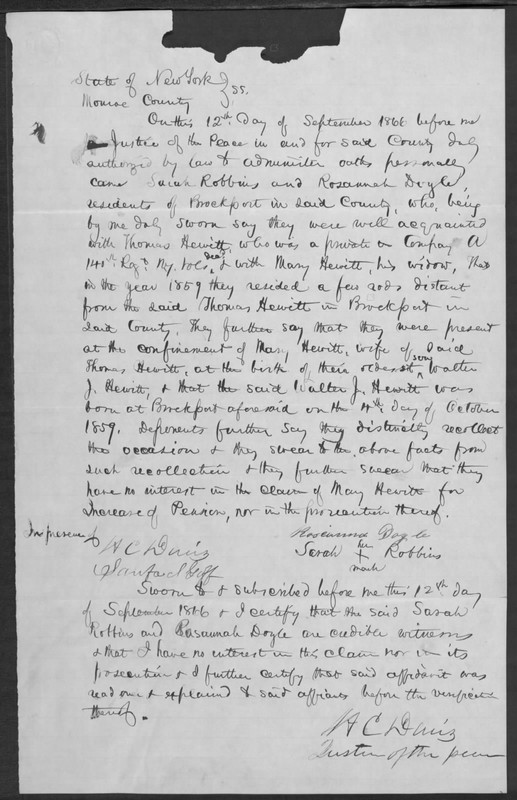 State of New York } ss.
Monroe County
On this 12th Day of September 1866 before me
a Justice of the Peace in and for said County duly
authorized by law to administer oaths personally
came Sarah Robbins and Rosannah Doyle,
residents of Brockport in said County, who, being
by me duly sworn say they were well acquainted
with Thomas Hewitt, who was a private in Company A
140th Regt. Ny. Vols, decd, & with Mary Hewitt, his widow, That
in the year 1859 they resided a few rods distant
from the said Thomas Hewitt in Brockport in
said County, They further say that they were present
at the confinement of Mary Hewitt, wife of said
Thomas Hewitt, at the birth of their oldest son, Walter
J. Hewitt, & that the said Walter J. Hewitt was
born at Brockport aforesaid on the 4th day of October
1859. Deponents further say they distinctly recollect
the occasion & they swear to the above facts from
such recollection & they further swear that they
have no interest in the claim of Mary Hewitt for
Increase of Pension, nor in the prosecution thereof.
In presence of
Rosannah Doyle
Sarah her X mark Robbins
Sworn to & subscribed before me this 12th day
of September 1866 & I certify that the said Sarah
Robbins and Rosannah Doyle are credible witnesses
& that I have no interest in this claim nor in its
prosecution & I further certify that said affidavit was
read over & explained to said affiants before the verification
thereof.
Justice of the peace